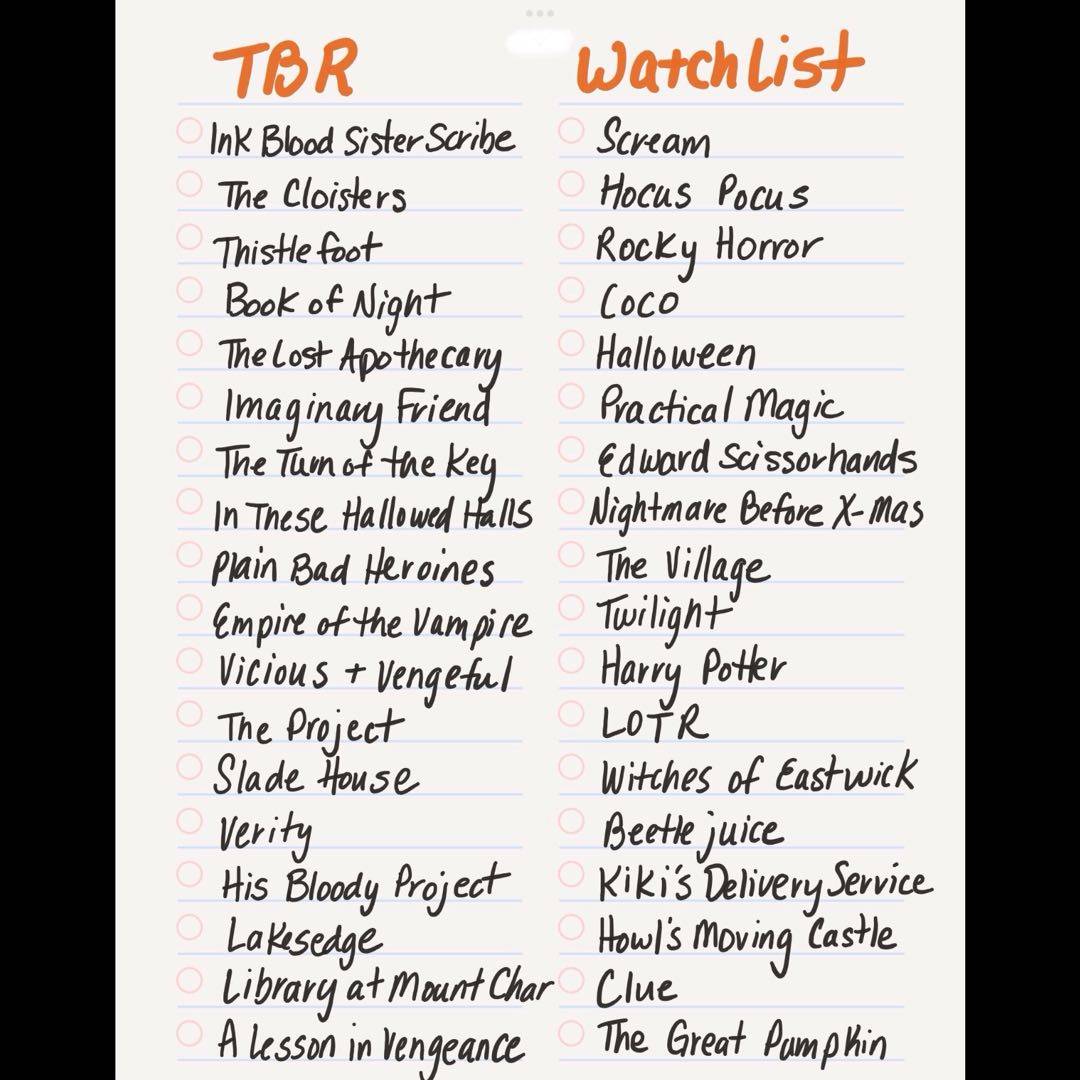 TBR
Ink Blood Sister Scribe
The Cloisters
Thistlefoot
Book of Night
The Lost Apothecary
Imaginary Friend
The Turn of the Key
In These Hallowed Halls
Plain Bad Heroines
Empire of the Vampire
Vicious + Vengeful
The Project
Slade House
Verity
His Bloody Project
Lakesedge
Library at Mount Char
A Lesson in Vengeance
Watch List
Scream
Hocus Pocus
Rocky Horror
Coco
Halloween
Practical Magic
Edward Scissorhands
Nightmare Before X-Mas
The Village
Twilight
Harry Potter
LOTR
Witches of Eastwick
Beetlejuice
Kiki's Delivery Service
Howl's Moving Castle
Clue
The Great Pumpkin